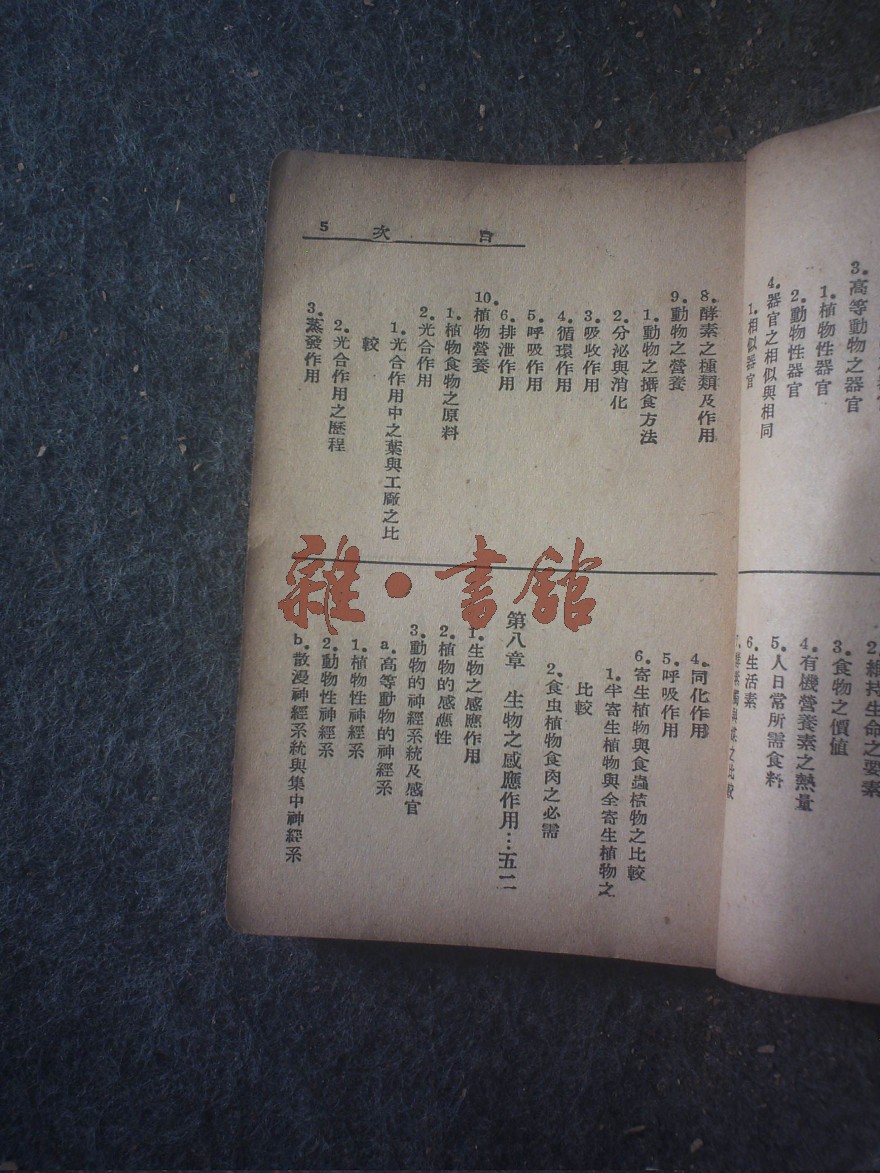 3.高等動物之器官
1.植物性器官
2.動物性器官
4.器官之相似與相同
1.相似器官
2.維持生命之要素
3.食物之價值
4.有機營養素之熱量
5.人日常所需食料
6.生活素
目 次 5
8.酵素之種類及作用
9.動物之營養
1.動物之攝食方法
2.分泌與消化
3.吸收作用
4.循環作用
5.呼吸作用
6.排泄作用
10.植物營養
1.植物食物之原料
2.光合作用
1.光合作用中之葉與工廠之比
較
2.光合作用之歷程
3.蒸發作用
4.同化作用
5.呼吸作用
6.寄生植物與食蟲植物之比較
1.半寄生植物與全寄生植物之
比較
2.食虫植物食肉之必需
第八章 生物之感應作用…五二
1.生物之感應作用
2.植物的感應性
3.動物的神經系統及感官
a.高等動物的神經系
1.植物性神經系
2.動物性神經系
b.散漫神經系統與集中神經系
雜·書館